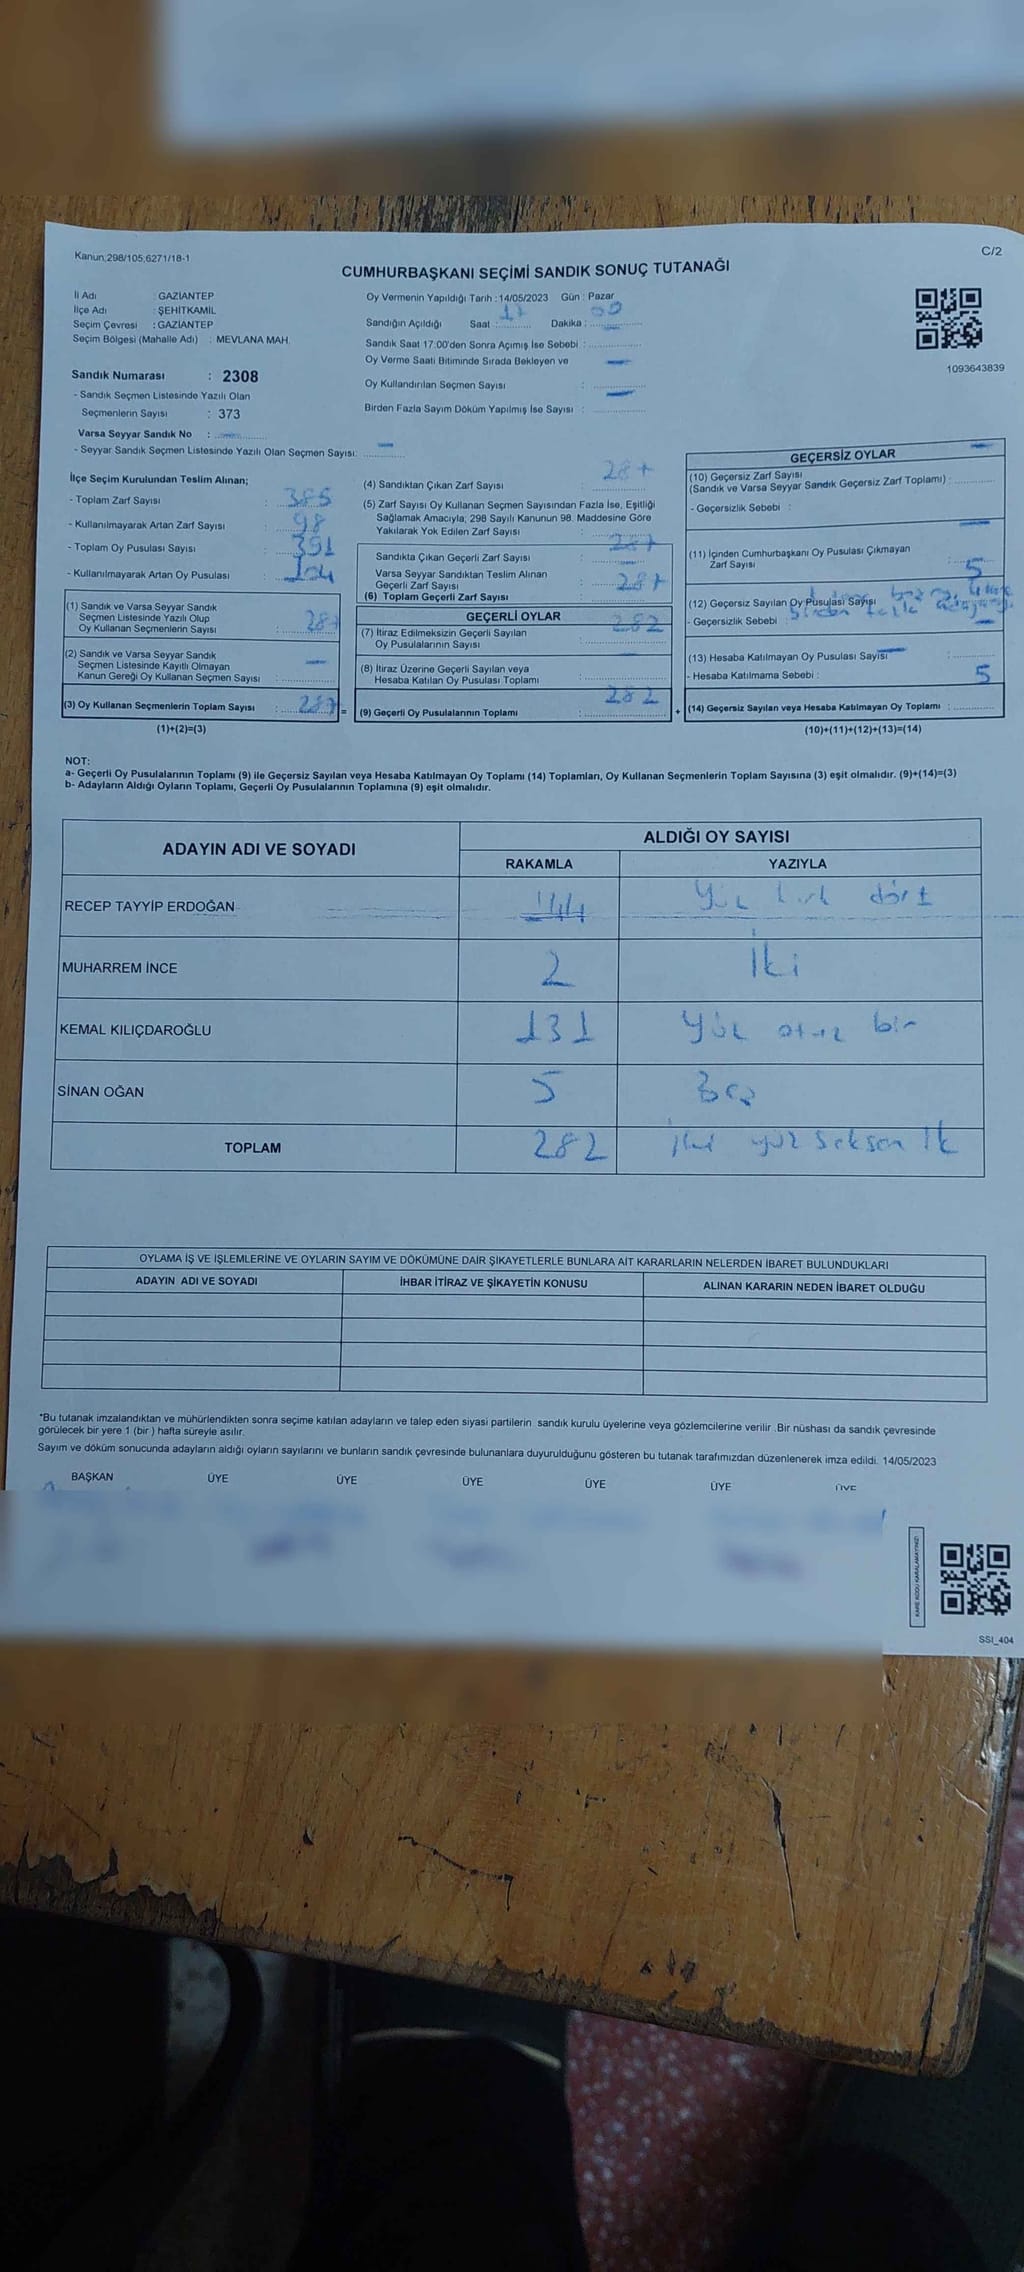 Kanun,298/105,6271/18-1
C/2
CUMHURBAŞKANI SEÇİMİ SANDIK SONUÇ TUTANAĞI
İl Adı : GAZİANTEP
İlçe Adı : ŞEHİTKAMİL
Seçim Çevresi : GAZİANTEP
Seçim Bölgesi (Mahalle Adı) : MEVLANA MAH.
Oy Vermenin Yapıldığı Tarih : 14/05/2023 Gün : Pazar
Sandığın Açıldığı Saat : 17 Dakika : 00
Sandık Saat 17:00'den Sonra Açımış İse Sebebi :
Oy Verme Saati Bitiminde Sırada Bekleyen ve
Oy Kullandırılan Seçmen Sayısı : —
Birden Fazla Sayım Döküm Yapılmış İse Sayısı : —
1093643839
Sandık Numarası : 2308
- Sandık Seçmen Listesinde Yazılı Olan
Seçmenlerin Sayısı : 373
Varsa Seyyar Sandık No : —
- Seyyar Sandık Seçmen Listesinde Yazılı Olan Seçmen Sayısı: —
İlçe Seçim Kurulundan Teslim Alınan;
- Toplam Zarf Sayısı : 385
- Kullanılmayarak Artan Zarf Sayısı : 98
- Toplam Oy Pusulası Sayısı : 391
- Kullanılmayarak Artan Oy Pusulası : 104
(1) Sandık ve Varsa Seyyar Sandık
Seçmen Listesinde Yazılı Olup
Oy Kullanan Seçmenlerin Sayısı : 287
(2) Sandık ve Varsa Seyyar Sandık
Seçmen Listesinde Kayıtlı Olmayan
Kanun Gereği Oy Kullanan Seçmen Sayısı : —
(3) Oy Kullanan Seçmenlerin Toplam Sayısı : 287 =
(1)+(2)=(3)
(4) Sandıktan Çıkan Zarf Sayısı : 287
(5) Zarf Sayısı Oy Kullanan Seçmen Sayısından Fazla İse, Eşitliği
Sağlamak Amacıyla, 298 Sayılı Kanunun 98. Maddesine Göre
Yakılarak Yok Edilen Zarf Sayısı : —
Sandıkta Çıkan Geçerli Zarf Sayısı : 287
Varsa Seyyar Sandıktan Teslim Alınan
Geçerli Zarf Sayısı : —
(6) Toplam Geçerli Zarf Sayısı : 287
GEÇERLİ OYLAR
(7) İtiraz Edilmeksizin Geçerli Sayılan
Oy Pusulalarının Sayısı : 282
(8) İtiraz Üzerine Geçerli Sayılan veya
Hesaba Katılan Oy Pusulası Toplamı :
(9) Geçerli Oy Pusulalarının Toplamı : 282 +
GEÇERSİZ OYLAR
(10) Geçersiz Zarf Sayısı
(Sandık ve Varsa Seyyar Sandık Geçersiz Zarf Toplamı) : —
- Geçersizlik Sebebi :
(11) İçinden Cumhurbaşkanı Oy Pusulası Çıkmayan
Zarf Sayısı : —
(12) Geçersiz Sayılan Oy Pusulası Sayısı : 5
- Geçersizlik Sebebi :
(13) Hesaba Katılmayan Oy Pusulası Sayısı : —
- Hesaba Katılmama Sebebi : —
(14) Geçersiz Sayılan veya Hesaba Katılmayan Oy Toplamı : 5
(10)+(11)+(12)+(13)=(14)
NOT:
a- Geçerli Oy Pusulalarının Toplamı (9) ile Geçersiz Sayılan veya Hesaba Katılmayan Oy Toplamı (14) Toplamları, Oy Kullanan Seçmenlerin Toplam Sayısına (3) eşit olmalıdır. (9)+(14)=(3)
b- Adayların Aldığı Oyların Toplamı, Geçerli Oy Pusulalarının Toplamına (9) eşit olmalıdır.
ADAYIN ADI VE SOYADI
ALDIĞI OY SAYISI
RAKAMLA YAZIYLA
RECEP TAYYİP ERDOĞAN 144 Yüz kırk dört
MUHARREM İNCE 2 İki
KEMAL KILIÇDAROĞLU 131 Yüz otuz bir
SİNAN OĞAN 5 Beş
TOPLAM 282 iki yüz seksen ik
OYLAMA İŞ VE İŞLEMLERİNE VE OYLARIN SAYIM VE DÖKÜMÜNE DAİR ŞİKAYETLERLE BUNLARA AİT KARARLARIN NELERDEN İBARET BULUNDUKLARI
ADAYIN ADI VE SOYADI İHBAR İTİRAZ VE ŞİKAYETİN KONUSU ALINAN KARARIN NEDEN İBARET OLDUĞU
*Bu tutanak imzalandıktan ve mühürlendikten sonra seçime katılan adayların ve talep eden siyasi partilerin sandık kurulu üyelerine veya gözlemcilerine verilir .Bir nüshası da sandık çevresinde
görülecek bir yere 1 (bir) hafta süreyle asılır.
Sayım ve döküm sonucunda adayların aldığı oyların sayılarını ve bunların sandık çevresinde bulunanlara duyurulduğunu gösteren bu tutanak tarafımızdan düzenlenerek imza edildi. 14/05/2023
BAŞKAN ÜYE ÜYE ÜYE ÜYE ÜYE ÜYE
KARE KODU KARALAMAYINIZ!
SSI_404